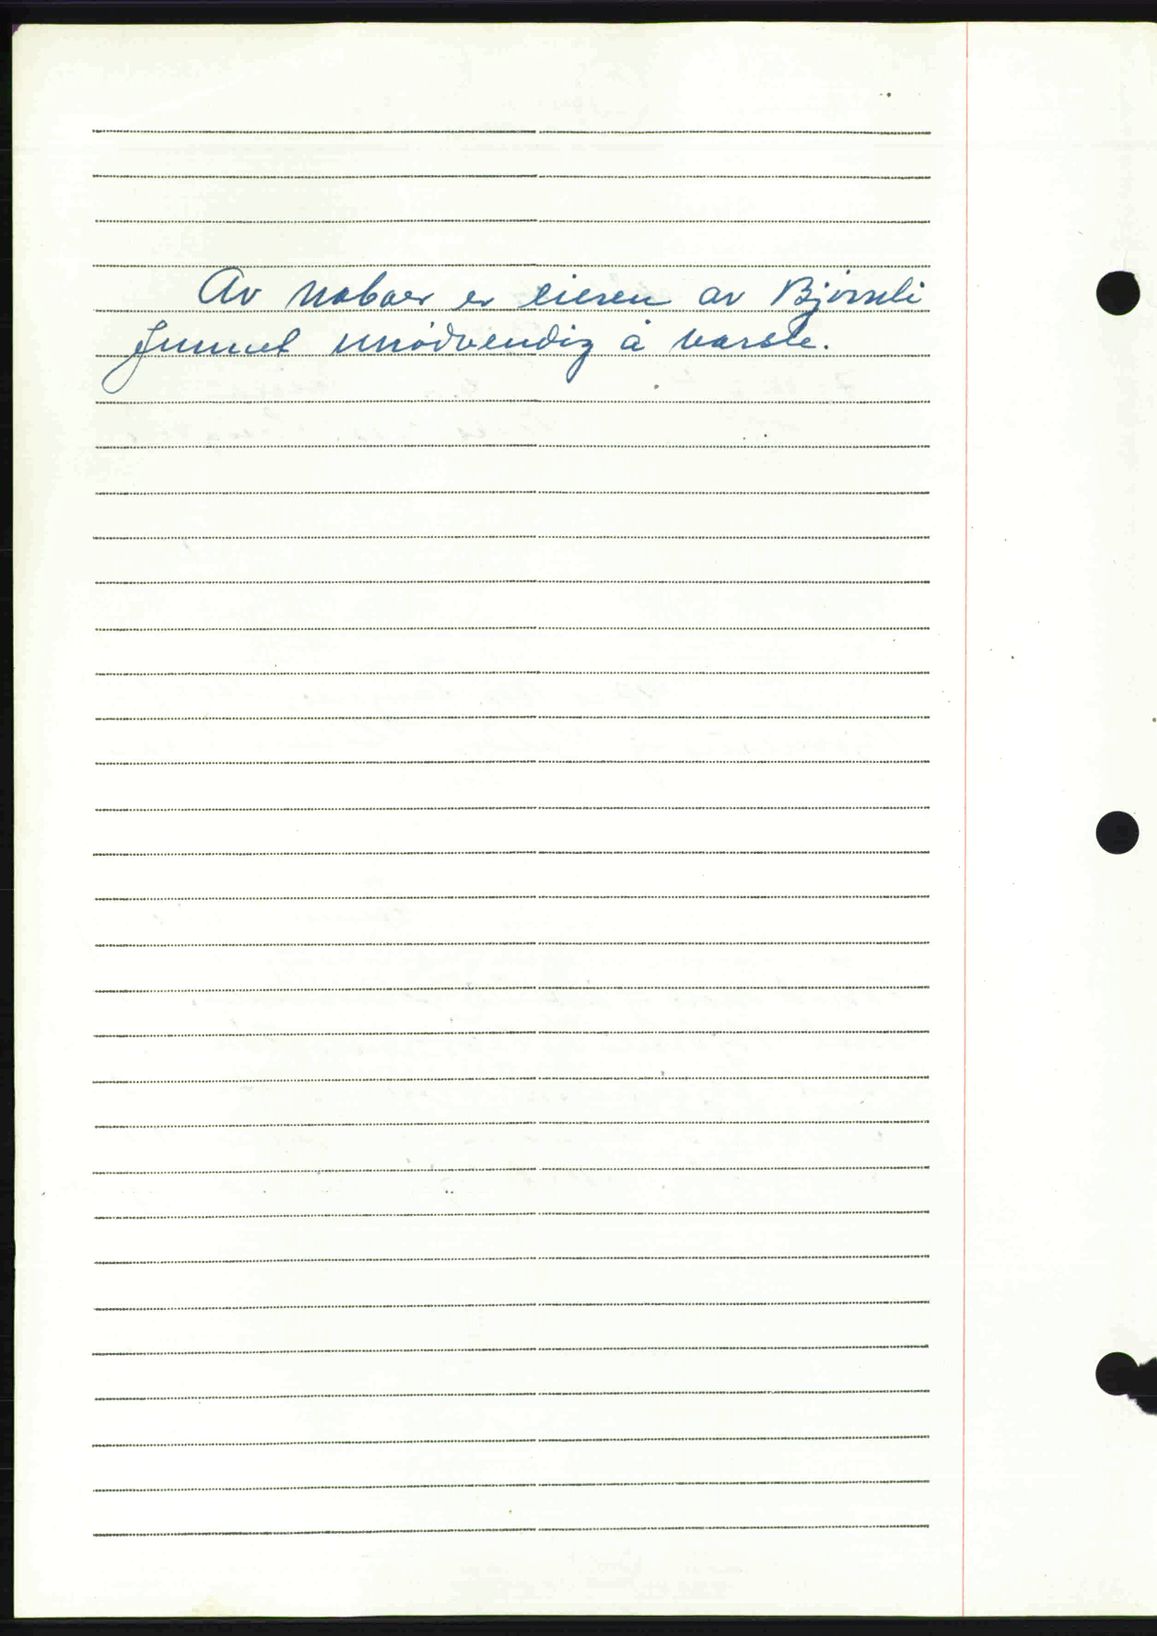 Av naboer er eieren av Bjørnli
funnet unødvendig å varsle.